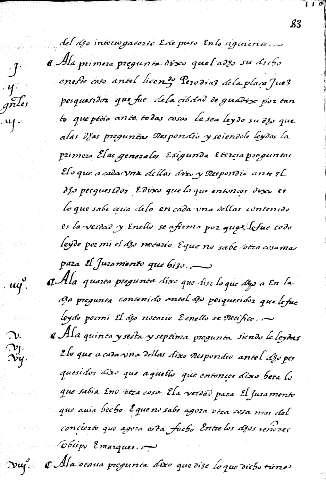 83
del dho interrogatorio E de puso En lo siguiente
j. A la primera pregunta dixo que el a dho su dicho
ij. en este caso antel licen.do Pero diaz de la plaça Juez
gn̄les pesquesidor que fue de la çibdad de guadix por tan
iij. to que pedia ante todas cosas le sea leydo su dho que
a las dhas preguntas Respondio y seiendole leydas la
primera E las generales E segunda E tercera preguntas
E lo que a cada vna dellas dixo y Respondio ante el
dho pesquesidor E dixo que lo que entonces dixo es
lo que sabe açia dello en cada vna dellas contenido
es la verdad y En ello se afirma por que le fue todo
leydo por mi el dho notario E que no sabe otra cosa mas
para El Juramento que hizo.
iiijº. A la quarta pregunta dixo que dize lo que dho a En la
dha pregunta contenido antel dho pesquesidor que le fue
leydo por mi El dho notario E en ello se Retifica.
v. A la quinta y sesta y septima pregunta siendo le leydas
vj. E lo que a cada vna dellas dixo Respondio antel dho pes
vij. quesidor dixo que aquello que entonces dixo hera lo
que sabia E no otra cosa E la verdad para El Juramento
que auia hecho E que no sabe agora otra cosa mas del
concierto que agora esta fecho Entre los dhos señores
obispo E marques.
viijº. A la otaua pregunta dixo que dize lo que dicho tiene